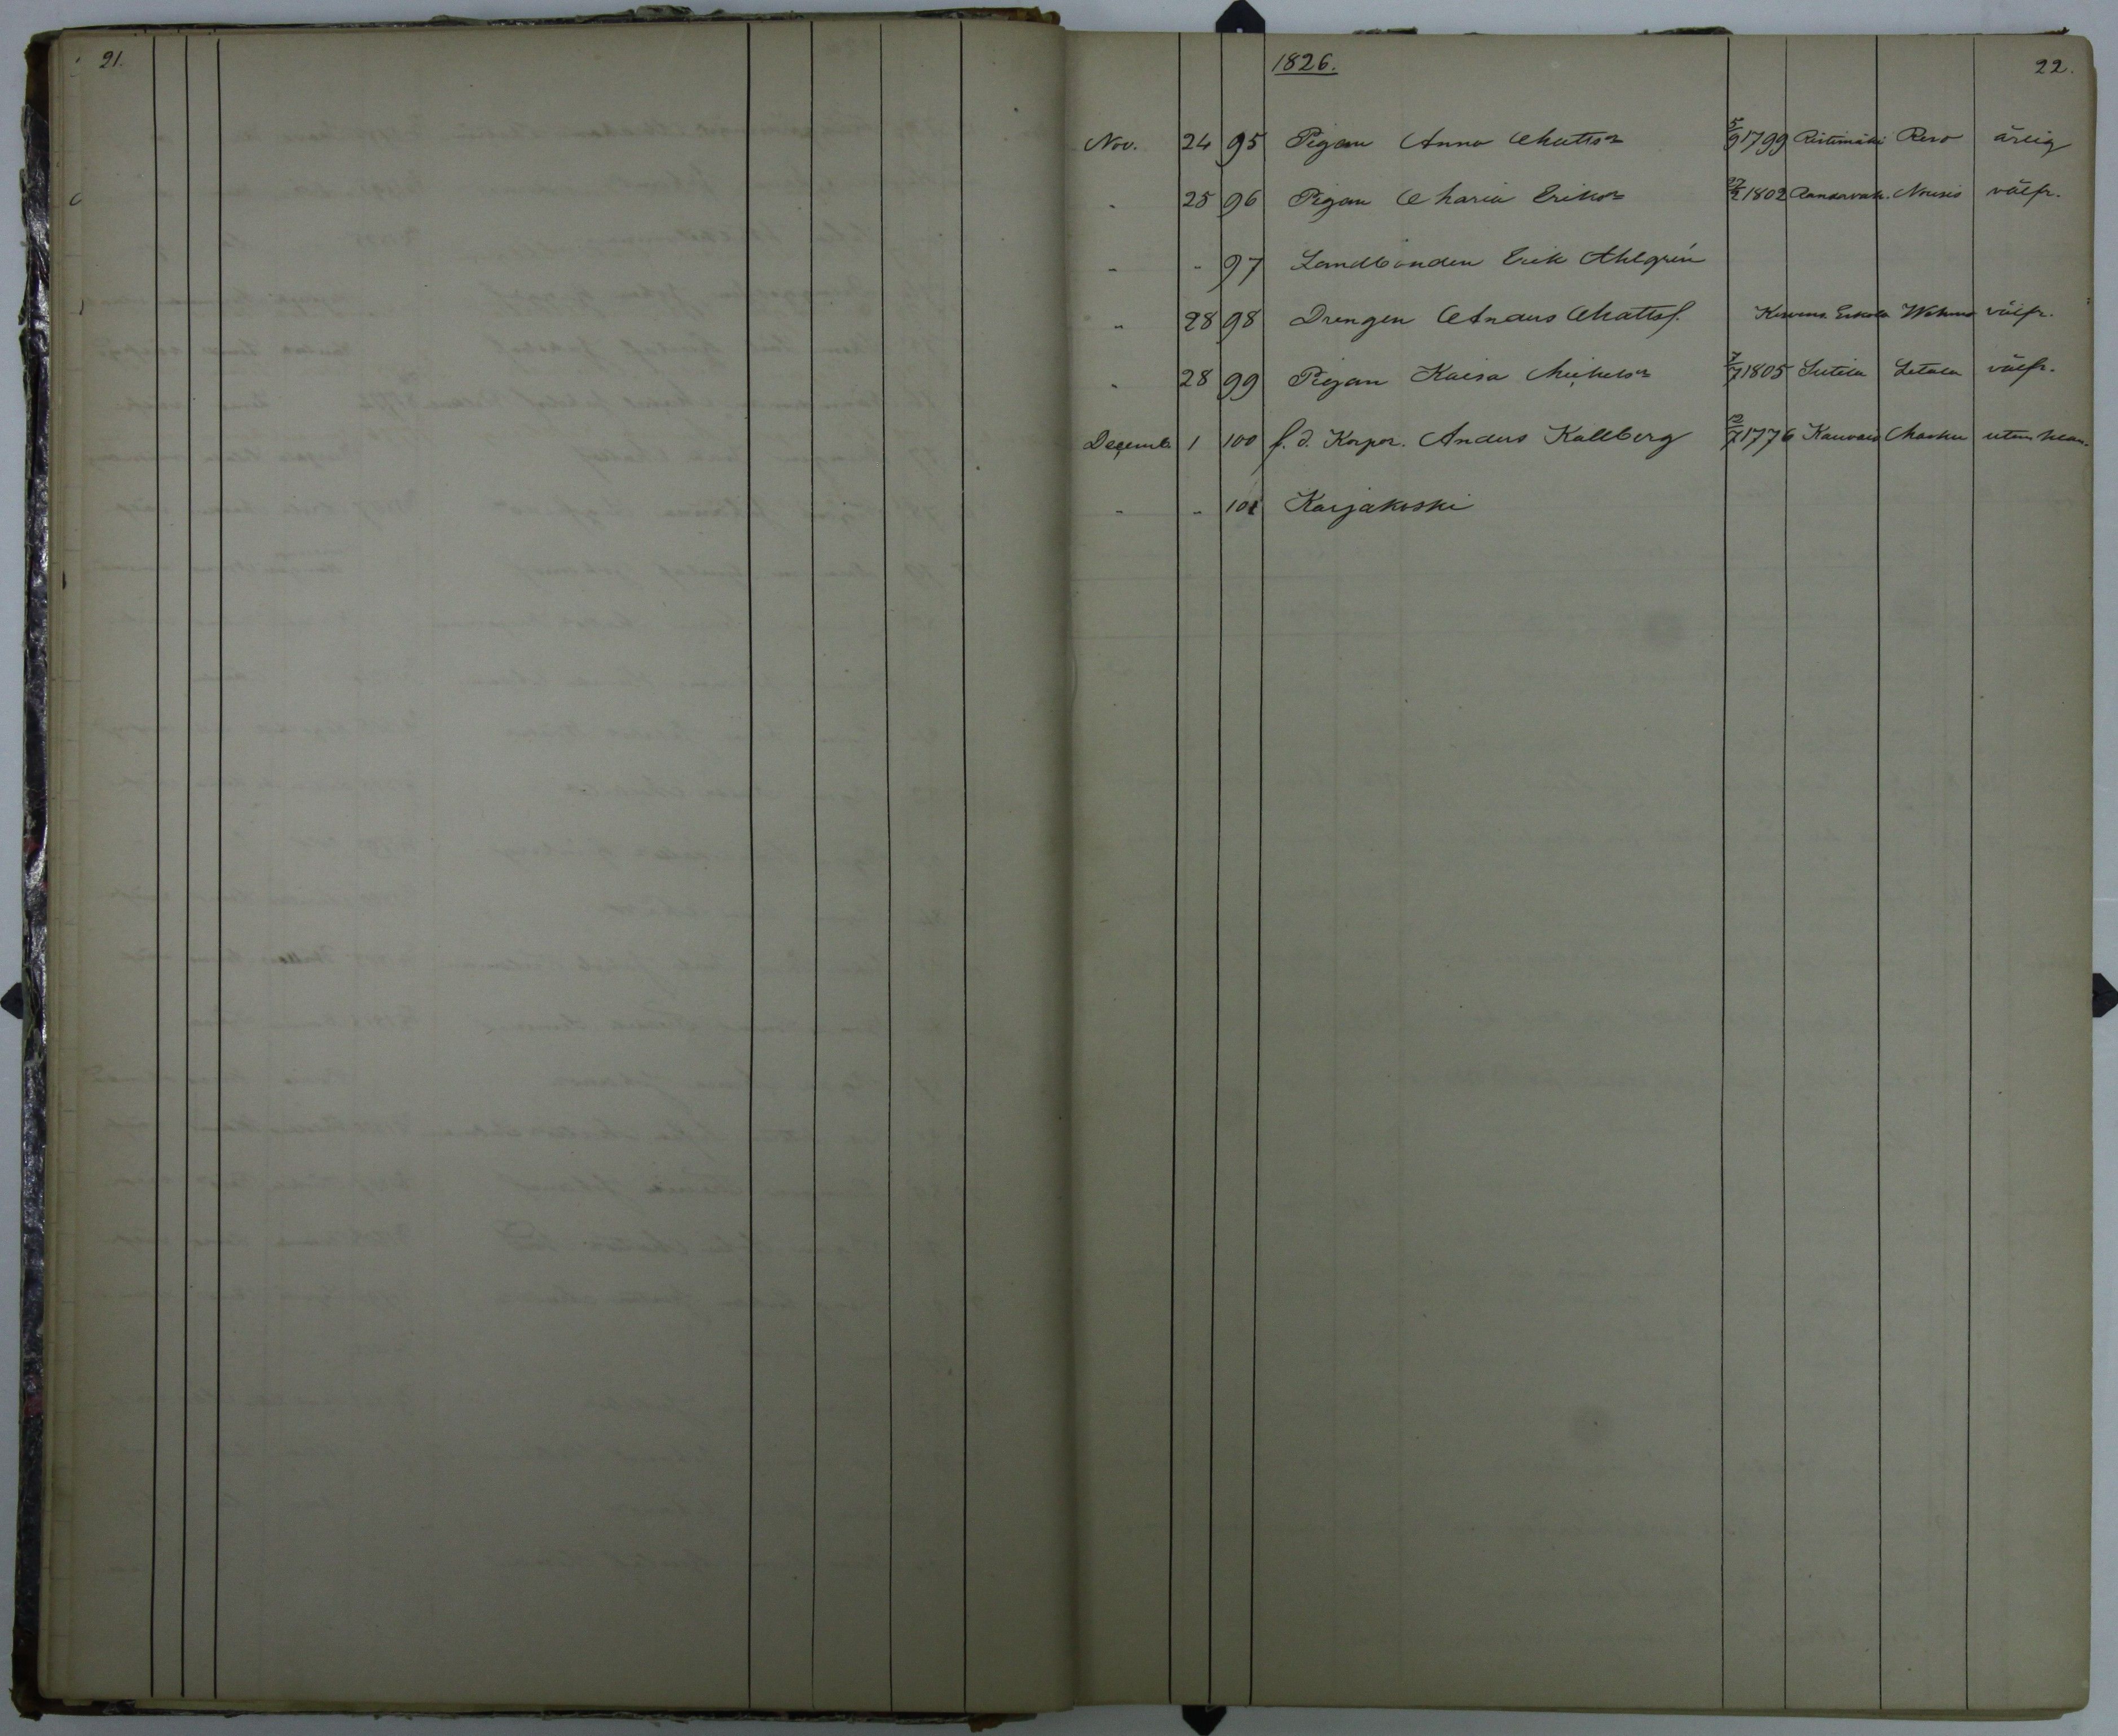 21.
1826. 22.
Nov. 24 95 Pigan Anna Mattsdr 5/9 1799 Ristimäki Reso ärlig
" 25 96 Pigan Maria Eriksdr 27/2 1802 Nousis välfr.
" " 97 Landbonden Erik Ahlgrén
" 28 98 Drengen Anders Mattsf. Eskola Wehmo välfr.
" 28 99 Pigan Kaisa Michelsdr 7/7 1805 Letala välfr.
Decemb. 1 100 f. d. Korpor. Anders Kallberg 12/7 1776 Masku utan
" " 101 Karjakoski